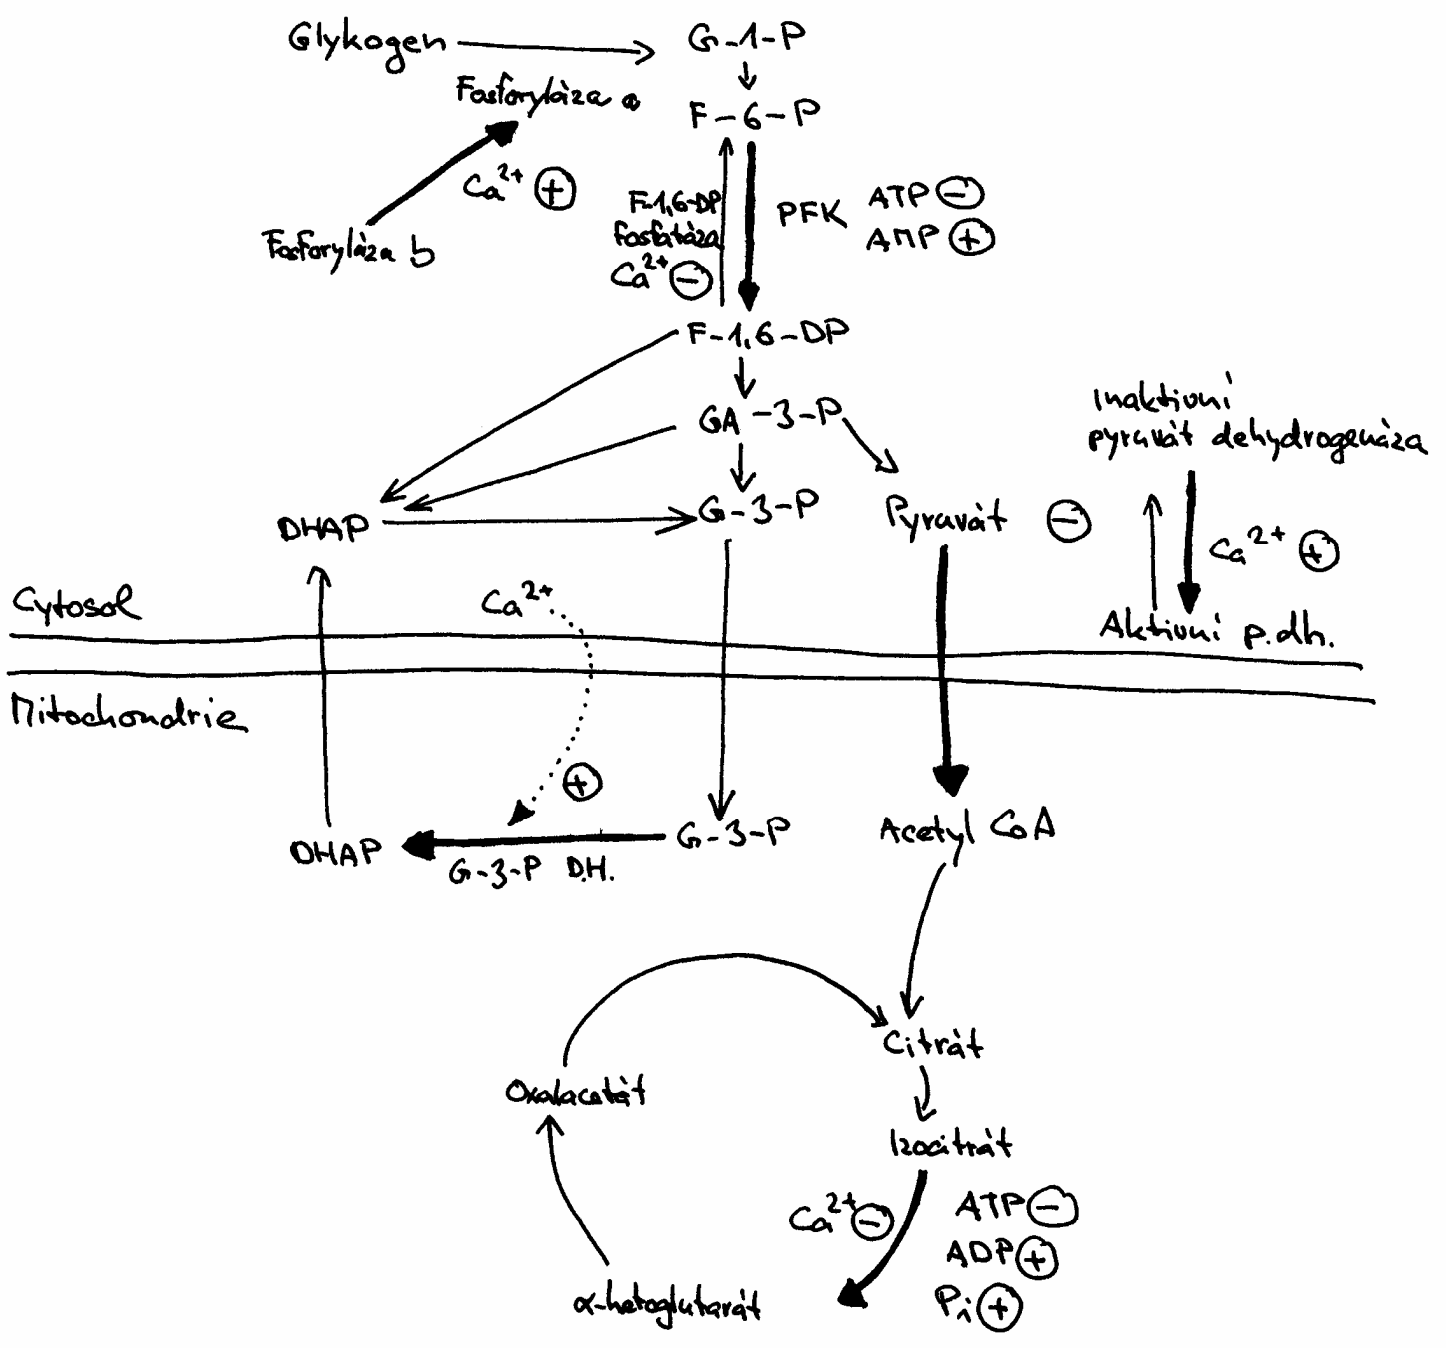 Glykogen
G-1-P
Fosforyláza a
F-6-P
Ca²⁺ +
Fosforyláza b
F-1,6-DP
fosfatáza
Ca²⁺ -
PFK
ATP -
AMP +
F-1,6-DP
GA-3-P
Inaktivní
pyruvát dehydrogenáza
DHAP
G-3-P
Pyruvát -
Ca²⁺ +
Aktivní p.dh.
Cytosol
Ca²⁺
Mitochondrie
+
DHAP
G-3-P D.H.
G-3-P
Acetyl CoA
Citrát
Oxalacetát
Izocitrát
Ca²⁺ -
ATP -
ADP +
Pi +
α-ketoglutarát